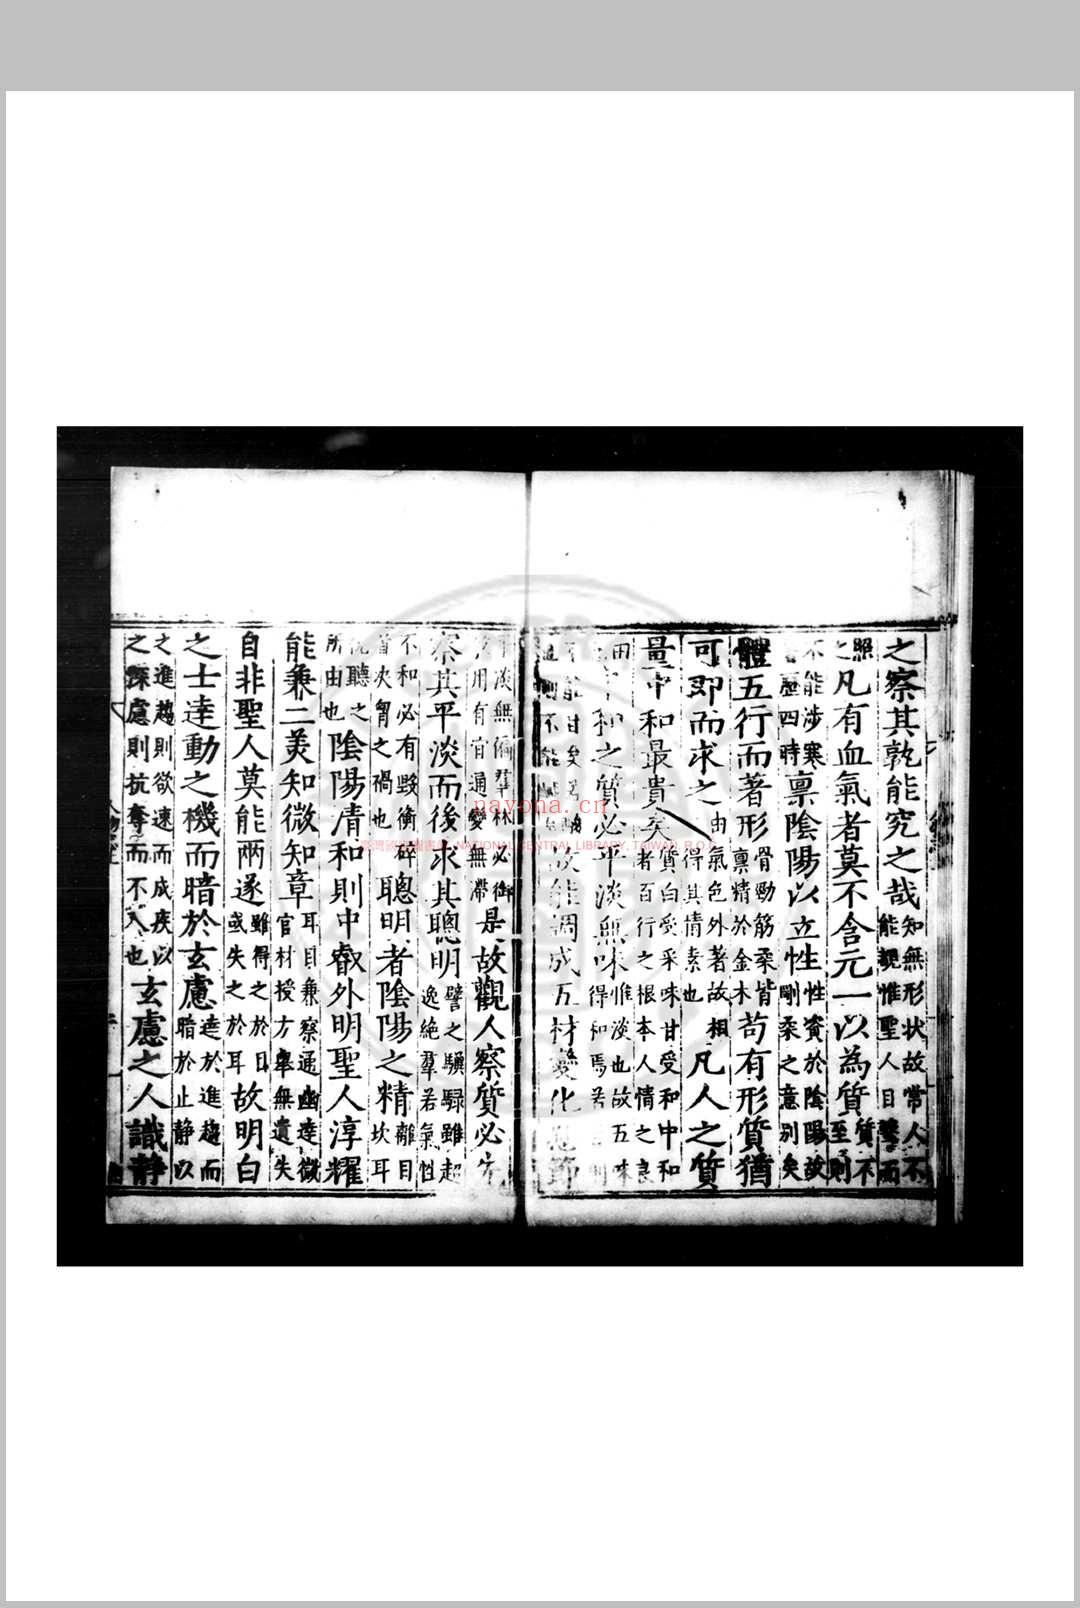 之察其孰能究之哉知無形狀故常人不能覩惟聖人目擊而
照之凡有血氣者莫不含元一以為質質不至則
不能涉寒暑歷四時稟陰陽以立性性資於陰陽故剛柔之意別矣
體五行而著形骨勁筋柔皆稟精於金木苟有形質猶
可即而求之由氣色外著故相得其情素也凡人之質
量中和最貴矣質白受采味甘受和中和者百行之根本人情之良田
中和之質必平淡無味惟淡也故五味得和焉若
故能調成五材變化應節
淡無偏羣材必御用有宜通變無滯是故觀人察質必先
察其平淡而後求其聰明譬之驥騄雖超逸絕羣若氣性
不和必有毀衡碎首决胷之禍也聰明者陰陽之精離目坎耳
視聽之所由也陰陽清和則中叡外明聖人淳耀
能兼二美知微知章耳目兼察通幽達微官材授方舉無遺失
自非聖人莫能兩遂雖得之於目或失之於耳故明白
之士達動之機而暗於玄慮達於進趨而暗於止静以
之進趨則欲速而成疾以之深慮則抗奪而不入也玄慮之人識静
人物志上
二
nayona.cn
NATIONAL CENTRAL LIBRARY, TAIWAN, R.O.C